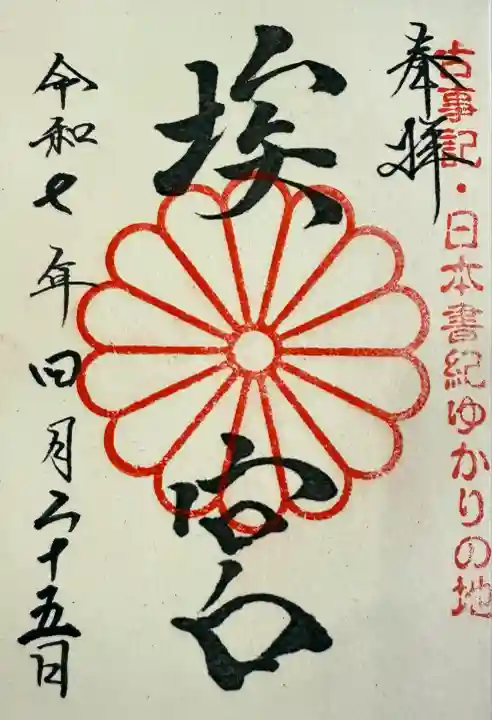 奉拝
古事記・日本書紀ゆかりの地
埃宮
令和七年四月二十五日